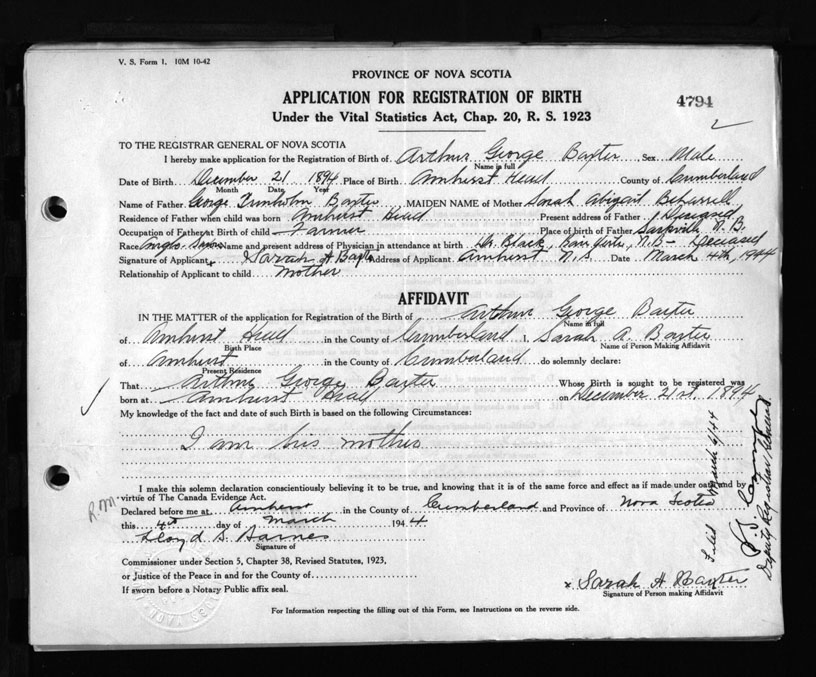 V. S. Form 1. 10M 10-42
PROVINCE OF NOVA SCOTIA
APPLICATION FOR REGISTRATION OF BIRTH
4794
Under the Vital Statistics Act, Chap. 20, R. S. 1923
TO THE REGISTRAR GENERAL OF NOVA SCOTIA
I hereby make application for the Registration of Birth of Arthur George Baxter Sex Male
Name in full
Date of Birth December 21 1894 Place of Birth Amherst Head County of Cumberland
Month Date Year
Name of Father George Baxter MAIDEN NAME of Mother Sarah Abigail
Residence of Father when child was born Amherst Head Present address of Father Deceased
Occupation of Father at Birth of child Farmer Place of birth of Father Sackville N. B.
Race Anglo-Saxon Name and present address of Physician in attendance at birth Dr. Black, N.B - Deceased
Signature of Applicant x Sarah A Baxter Address of Applicant Amherst N. S. Date March 4th, 1944
Relationship of Applicant to child mother
AFFIDAVIT
IN THE MATTER of the application for Registration of the Birth of Arthur George Baxter
Name in full
of Amherst Head in the County of Cumberland I, Sarah A. Baxter
Birth Place Name of Person Making Affidavit
of Amherst in the County of Cumberland do solemnly declare:
Present Residence
That Arthur George Baxter Whose Birth is sought to be registered was
born at Amherst Head on December 21st, 1894
My knowledge of the fact and date of such Birth is based on the following Circumstances:
I am his mother
I make this solemn declaration conscientiously believing it to be true, and knowing that it is of the same force and effect as if made under oath and by
R.M. virtue of The Canada Evidence Act.
Declared before me at Amherst in the County of Cumberland and Province of Nova Scotia
this 4th day of March 1944
Lloyd S. Barnes
Signature of
Commissioner under Section 5, Chapter 38, Revised Statutes, 1923,
or Justice of the Peace in and for the County of
If sworn before a Notary Public affix seal.
x Sarah A Baxter
Signature of Person making Affidavit
For Information respecting the filling out of this Form, see Instructions on the reverse side.
Filed March 6/44
Deputy Registrar General